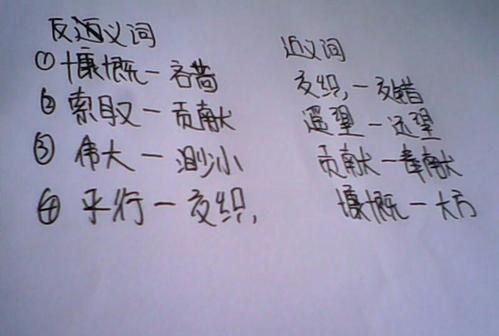 反义词
①慷慨一吝啬
②索取一贡献
③伟大一渺小
④平行一交织,
近义词
交织,一交错
遥望一远望
贡献一奉献
慷慨一大方